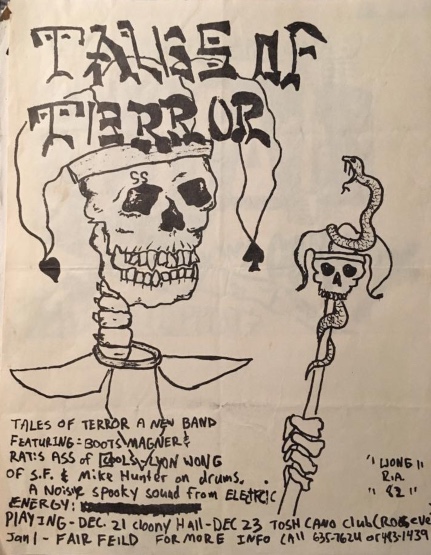 TALES OF
TERROR
SS
TALES OF TERROR A NEW BAND
FEATURING: BOOTS MAGNER &
RAT'S ASS of LYON WONG
OF S.F. & Mike Hunter on drums.
A Noisy spooky sound from
ENERGY:
"WONG"
R.A.
"82"
PLAYING - DEC. 21 cloony Hall - DEC 23 TOSH CANO Club (
Jan 1 - FAIR FEILD FOR MORE INFO CAll 635-7624 or 483-1439